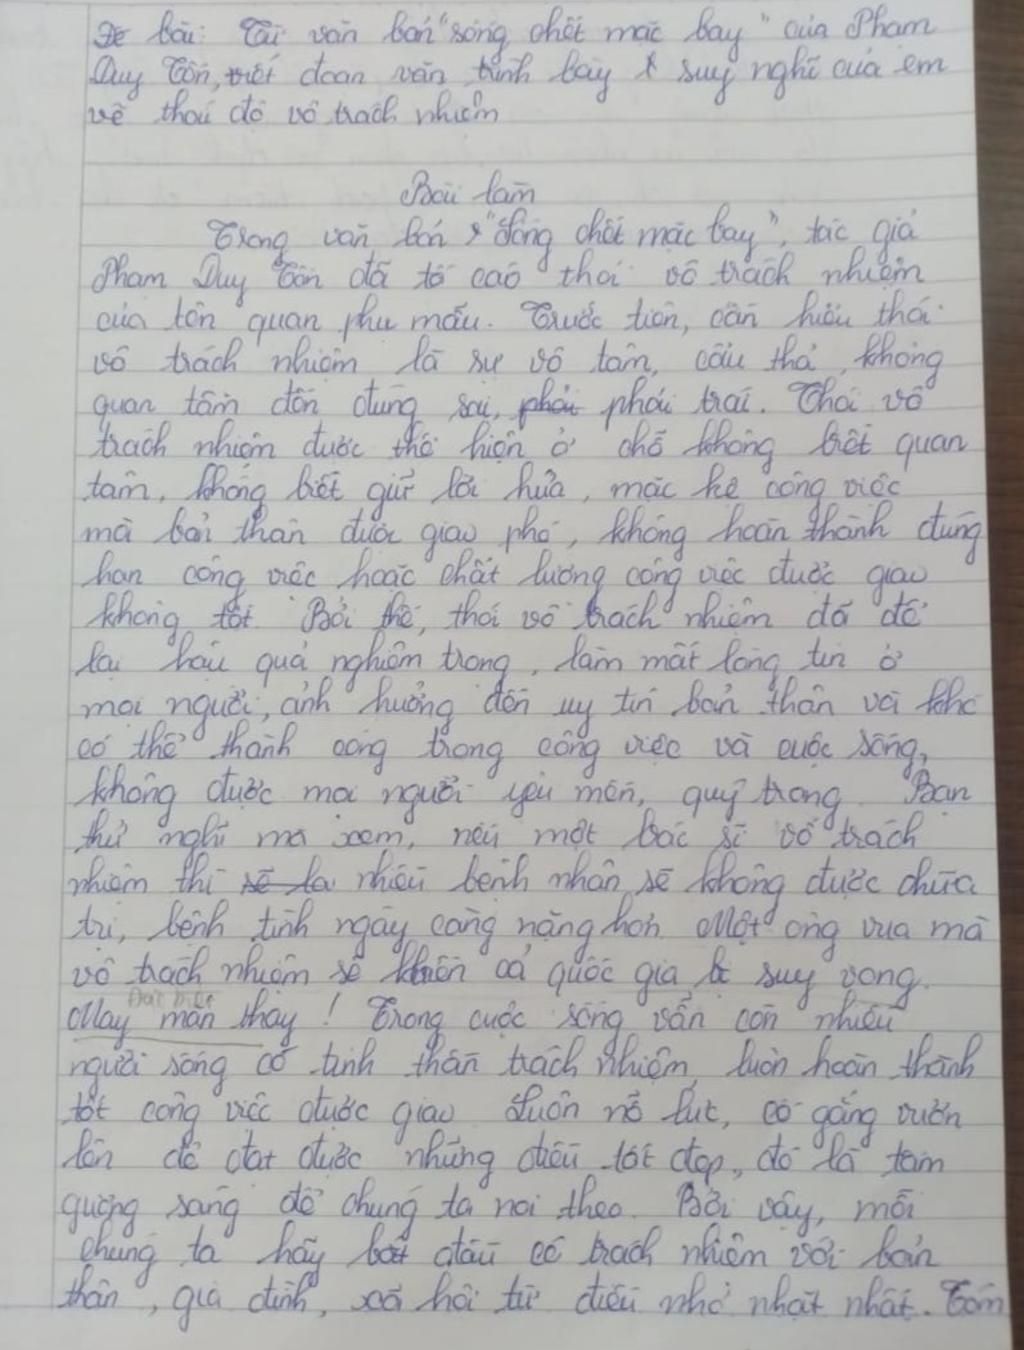 Đề bài: Từ văn bản "sống chết mặc bay" của Phạm
Duy Tốn, viết đoạn văn trình bày suy nghĩ của em
về thói độ vô trách nhiệm
Bài làm
Trong văn bản "Sống chết mặc bay", tác giả
Phạm Duy Tốn đã tố cáo thói vô trách nhiệm
của tên quan phụ mẫu. Trước tiên, cần hiểu thói
vô trách nhiệm là sự vô tâm, cẩu thả, không
quan tâm đến đúng sai, phải trái. Thói vô
trách nhiệm được thể hiện ở chỗ không biết quan
tâm, không biết giữ lời hứa, mặc kệ công việc
mà bản thân được giao phó, không hoàn thành đúng
hạn công việc hoặc chất lượng công việc được giao
không tốt. Bởi thế, thói vô trách nhiệm đã để
lại hậu quả nghiêm trọng, làm mất lòng tin ở
mọi người, ảnh hưởng đến uy tín bản thân và khó
có thể thành công trong công việc và cuộc sống,
không được mọi người yêu mến, quý trọng. Bạn
thử nghĩ mà xem, nếu một bác sĩ vô trách
nhiệm thì nhiều bệnh nhân sẽ không được chữa
trị, bệnh tình ngày càng nặng hơn. Một ông vua mà
vô trách nhiệm sẽ khiến cả quốc gia bị suy vong.
May mắn thay! Trong cuộc sống vẫn còn nhiều
người sống có tinh thần trách nhiệm, luôn hoàn thành
tốt công việc được giao. Luôn nỗ lực, cố gắng vươn
lên để đạt được những điều tốt đẹp, đó là tấm
gương sáng để chúng ta noi theo. Bởi vậy, mỗi
chúng ta hãy bắt đầu có trách nhiệm với bản
thân, gia đình, xã hội từ điều nhỏ nhặt nhất. Tóm